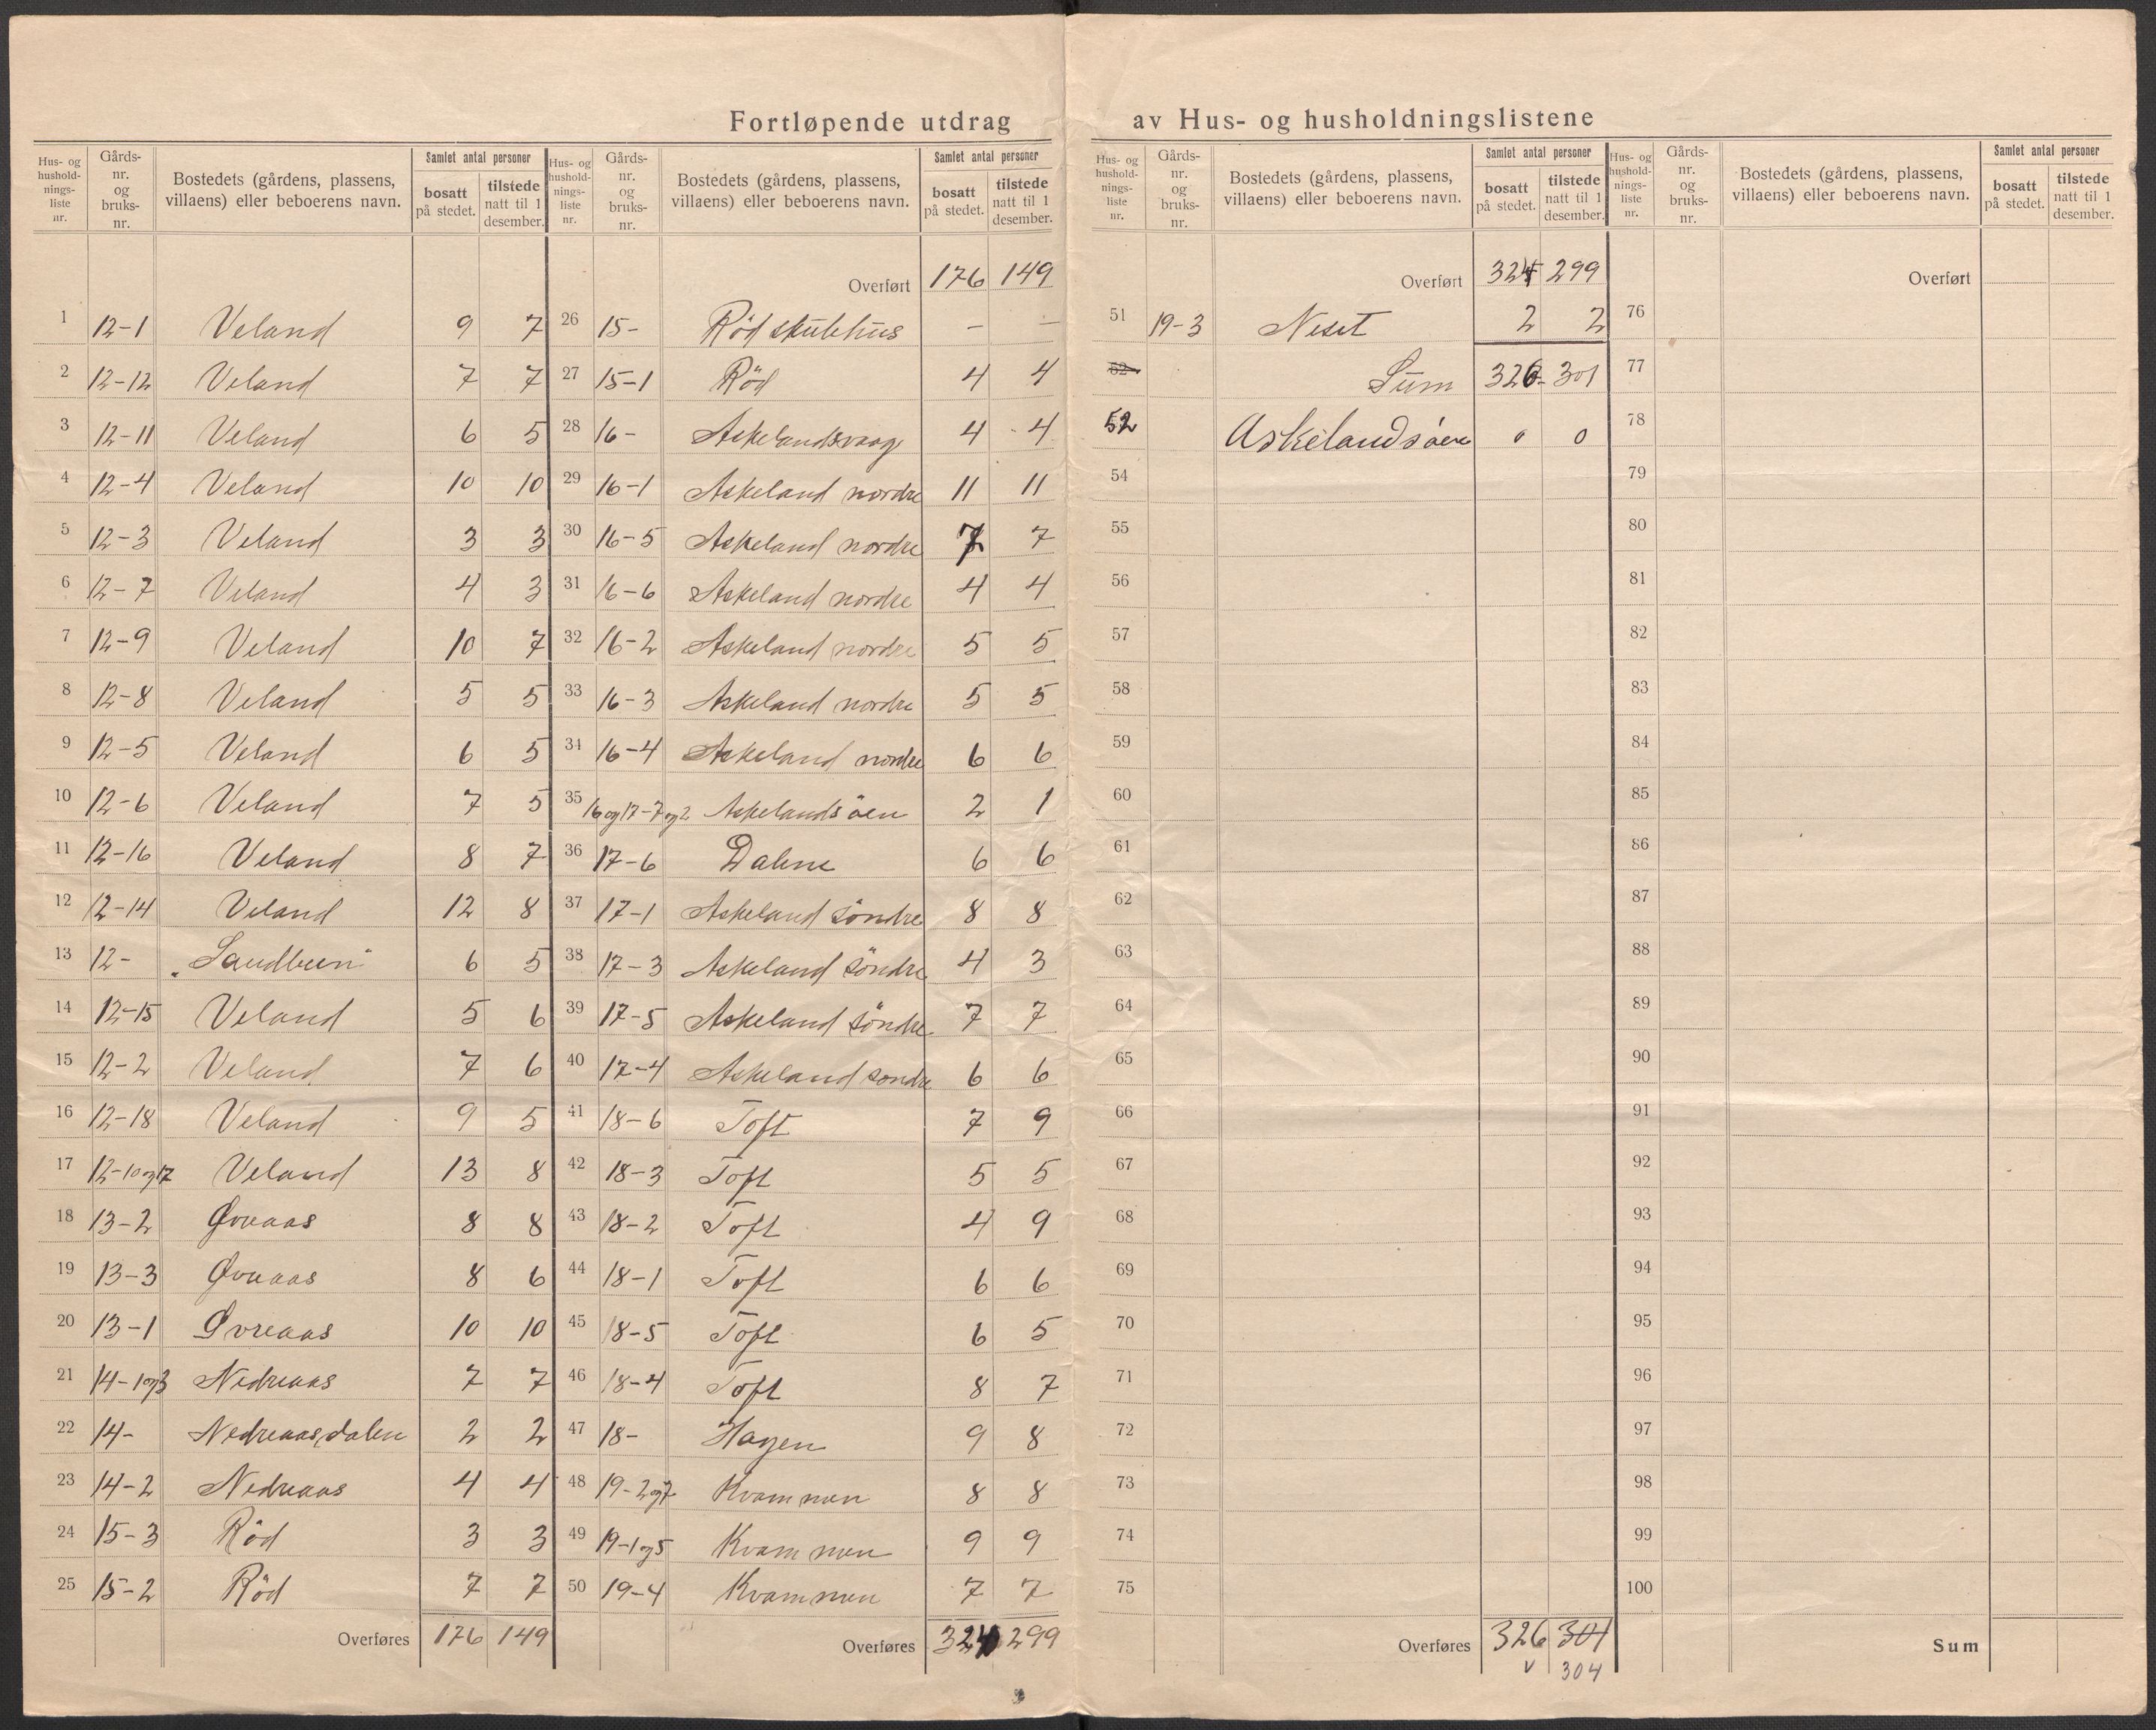 Fortløpende utdrag av Hus- og husholdningslistene
Hus- og husholdnings-liste nr. | Gårds-nr. og bruks-nr. | Bostedets (gårdens, plassens, villaens) eller beboerens navn. | Samlet antal personer | bosatt på stedet. | tilstede natt til 1 desember.
1 12-1 Veland 9 7
2 12-12 Veland 7 7
3 12-11 Veland 6 5
4 12-4 Veland 10 10
5 12-3 Veland 3 3
6 12-7 Veland 4 3
7 12-9 Veland 10 7
8 12-8 Veland 5 5
9 12-5 Veland 6 5
10 12-6 Veland 7 5
11 12-16 Veland 8 7
12 12-14 Veland 12 8
13 12- „Sandbeen" 6 5
14 12-15 Veland 5 6
15 12-2 Veland 7 6
16 12-18 Veland 9 5
17 12-10 og 17 Veland 13 8
18 13-2 Øvreaas 8 8
19 13-3 Øvreaas 8 6
20 13-1 Øvreaas 10 10
21 14-1 og 3 Nedreaas 7 7
22 14- Nedreaasdalen 2 2
23 14-2 Nedreaas 4 4
24 15-3 Röd 3 3
25 15-2 Röd 7 7
Overføres 176 149
Hus- og husholdnings-liste nr. | Gårds-nr. og bruks-nr. | Bostedets (gårdens, plassens, villaens) eller beboerens navn. | Samlet antal personer | bosatt på stedet. | tilstede natt til 1 desember.
Overført 176 149
26 15- Röd skulehus - -
27 15-1 Röd 4 4
28 16- Askelandsvaag 4 4
29 16-1 Askeland nordre 11 11
30 16-5 Askeland nordre 7 7
31 16-6 Askeland nordre 4 4
32 16-2 Askeland nordre 5 5
33 16-3 Askeland nordre 5 5
34 16-4 Askeland nordre 6 6
35 16 og 17-7 og 2 Askelandsöen 2 1
36 17-6 Dalene 6 6
37 17-1 Askeland söndre 8 8
38 17-3 Askeland söndre 4 3
39 17-5 Askeland söndre 7 7
40 17-4 Askeland sondre 6 6
41 18-6 Toft 7 9
42 18-3 Toft 5 5
43 18-2 Toft 4 9
44 18-1 Toft 6 6
45 18-5 Toft 6 5
46 18-4 Toft 8 7
47 18- Hagen 9 8
48 19-2 og 7 Kvammen 8 8
49 19-1 og 5 Kvammen 9 9
50 19-4 Kvammen 7 7
Overføres 324 299
Hus- og husholdnings-liste nr. | Gårds-nr. og bruks-nr. | Bostedets (gårdens, plassens, villaens) eller beboerens navn. | Samlet antal personer | bosatt på stedet. | tilstede natt til 1 desember.
Overført 324 299
51 19-3 Neset 2 2
52 Sum 326 301
52 Askelandsöen 0 0
54
55
56
57
58
59
60
61
62
63
64
65
66
67
68
69
70
71
72
73
74
75
Overføres 326 301
v 304
Hus- og husholdnings-liste nr. | Gårds-nr. og bruks-nr. | Bostedets (gårdens, plassens, villaens) eller beboerens navn. | Samlet antal personer | bosatt på stedet. | tilstede natt til 1 desember.
Overført
76
77
78
79
80
81
82
83
84
85
86
87
88
89
90
91
92
93
94
95
96
97
98
99
100
Sum